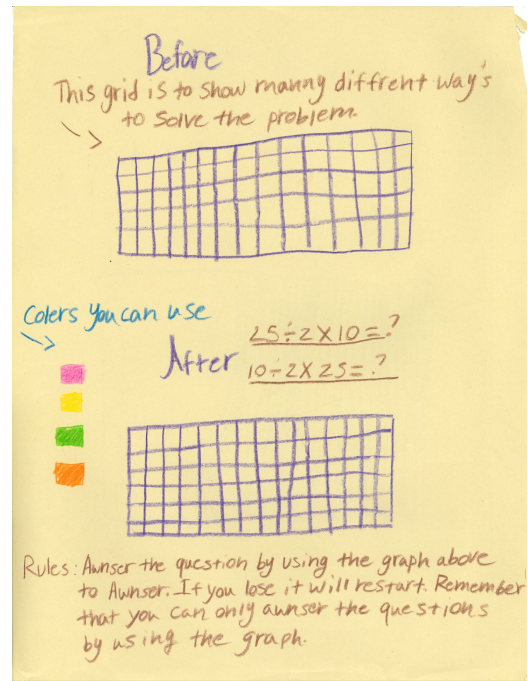 Before
This grid is to show manny diffrent way's
to solve the problem.
Colers You can use
25÷2X10=?
After
10÷2X25=?
Rules: Awnser the question by using the graph above
to Awnser. If you lose it will restart. Remember
that you can only awnser the questions
by using the graph.